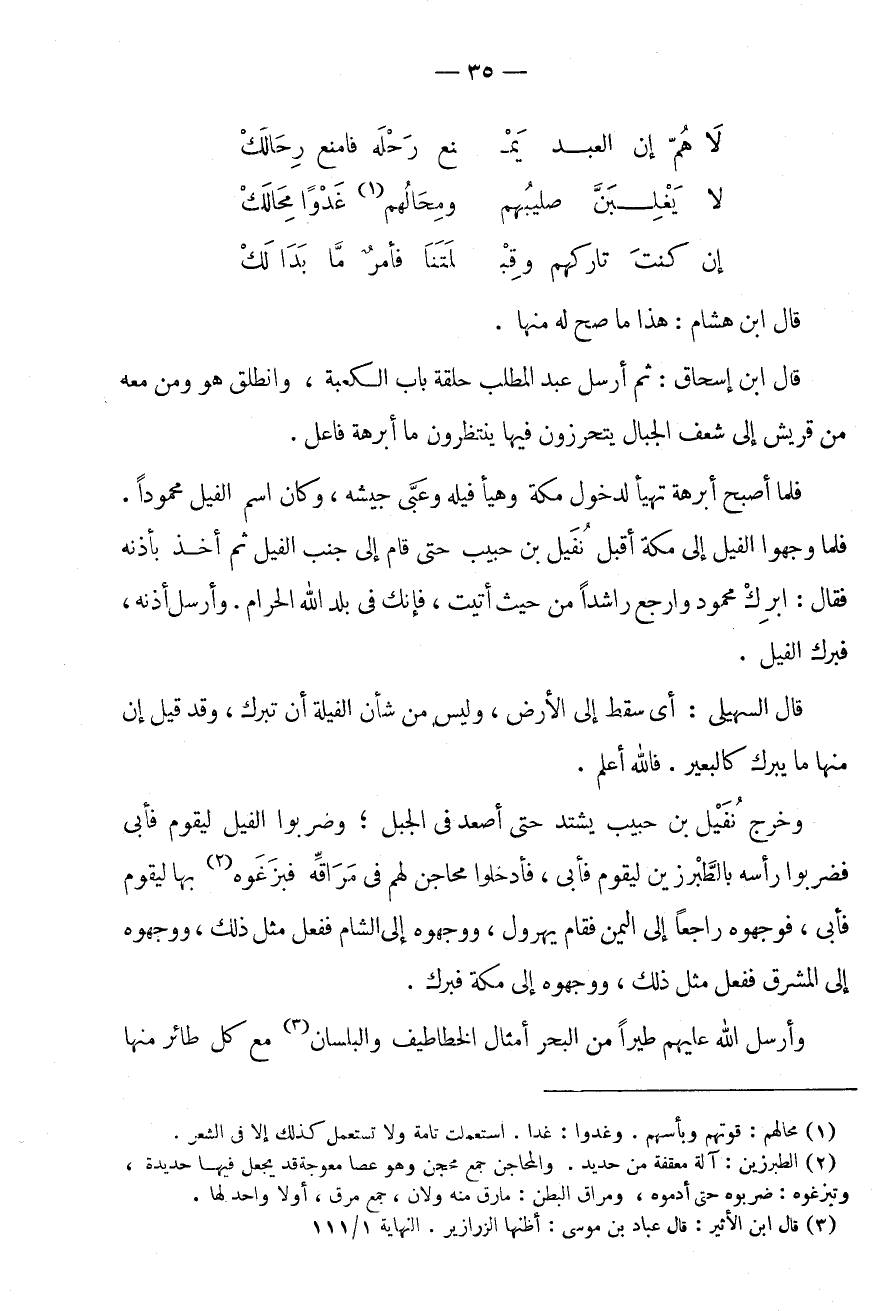 — ٣٥ —
لَا هُمّ إن العبـــد يَمْـ نع رَحْلَه فامنع رِحَالَكْ
لا يَغْلِـــبَنَّ صليبُهم ومِحَالُهم(١) غَدْوًا مِحَالَكْ
إن كنتَ تاركهم وقِبْـ لَتَنَا فأمرٌ مَّا بَدَا لَكْ
قال ابن هشام : هذا ما صح له منها .
قال ابن إسحاق : ثم أرسل عبد المطلب حلقة باب الكعبة ، وانطلق هو ومن معه
من قريش إلى شعف الجبال يتحرزون فيها ينتظرون ما أبرهة فاعل .
فلما أصبح أبرهة تهيأ لدخول مكة وهيأ فيله وعَبَّى جيشه ، وكان اسم الفيل محموداً .
فلما وجهوا الفيل إلى مكة أقبل نُفَيل بن حبيب حتى قام إلى جنب الفيل ثم أخـذ بأذنه
فقال : ابرِكْ محمود وارجع راشداً من حيث أتيت ، فإنك فى بلد الله الحرام . وأرسل أذنه ،
فبرك الفيل .
قال السهيلى : أى سقط إلى الأرض ، وليس من شأن الفيلة أن تبرك ، وقد قيل إن
منها ما يبرك كالبعير . فالله أعلم .
وخرج نُفَيْل بن حبيب يشتد حتى أصعد فى الجبل ؛ وضربوا الفيل ليقوم فأبى
فضربوا رأسه بالطَّبْرزين ليقوم فأبى ، فأدخلوا محاجن لهم فى مَرَاقِّه فبزَغَوه(٢) بها ليقوم
فأبى ، فوجهوه راجعاً إلى اليمن فقام يهرول ، ووجهوه إلى الشام ففعل مثل ذلك ، ووجهوه
إلى المشرق ففعل مثل ذلك ، ووجهوه إلى مكة فبرك .
وأرسل الله عليهم طيراً من البحر أمثال الخطاطيف والبلسان(٣) مع كل طائر منها
(١) محالهم : قوتهم وبأسهم . وغدوا : غدا . استعملت تامة ولا تستعمل كذلك إلا فى الشعر .
(٢) الطبرزين : آلة معقفة من حديد . والمحاجن جمع محجن وهو عصا معوجة قد يجعل فيهـا حديدة ،
وتبزغوه : ضربوه حتى أدموه ، ومراق البطن : مارق منه ولان ، جمع مرق ، أولا واحد لها .
(٣) قال ابن الأثير : قال عباد بن موسى : أظنها الزرازير . النهاية ١/ ١١١